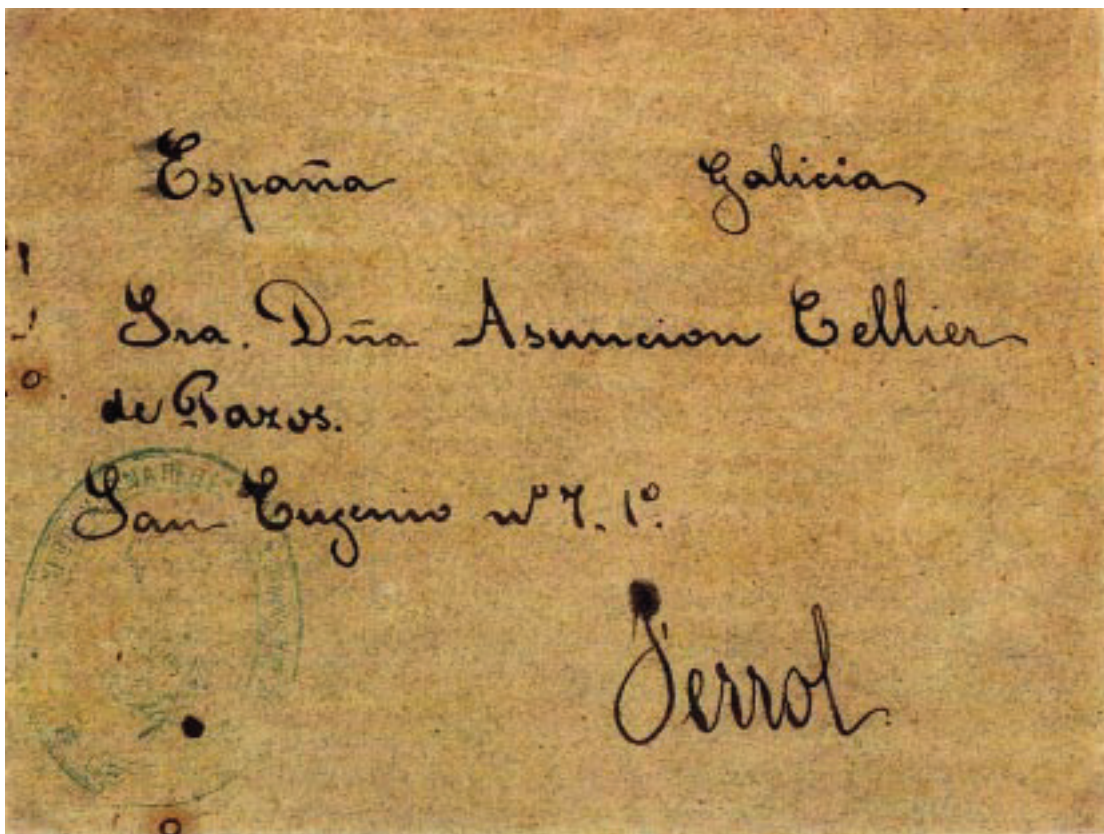 España Galicia
Sra. Dña Asuncion Tellier
de Pazos.
San Eugenio nº 7. 1º.
Ferrol